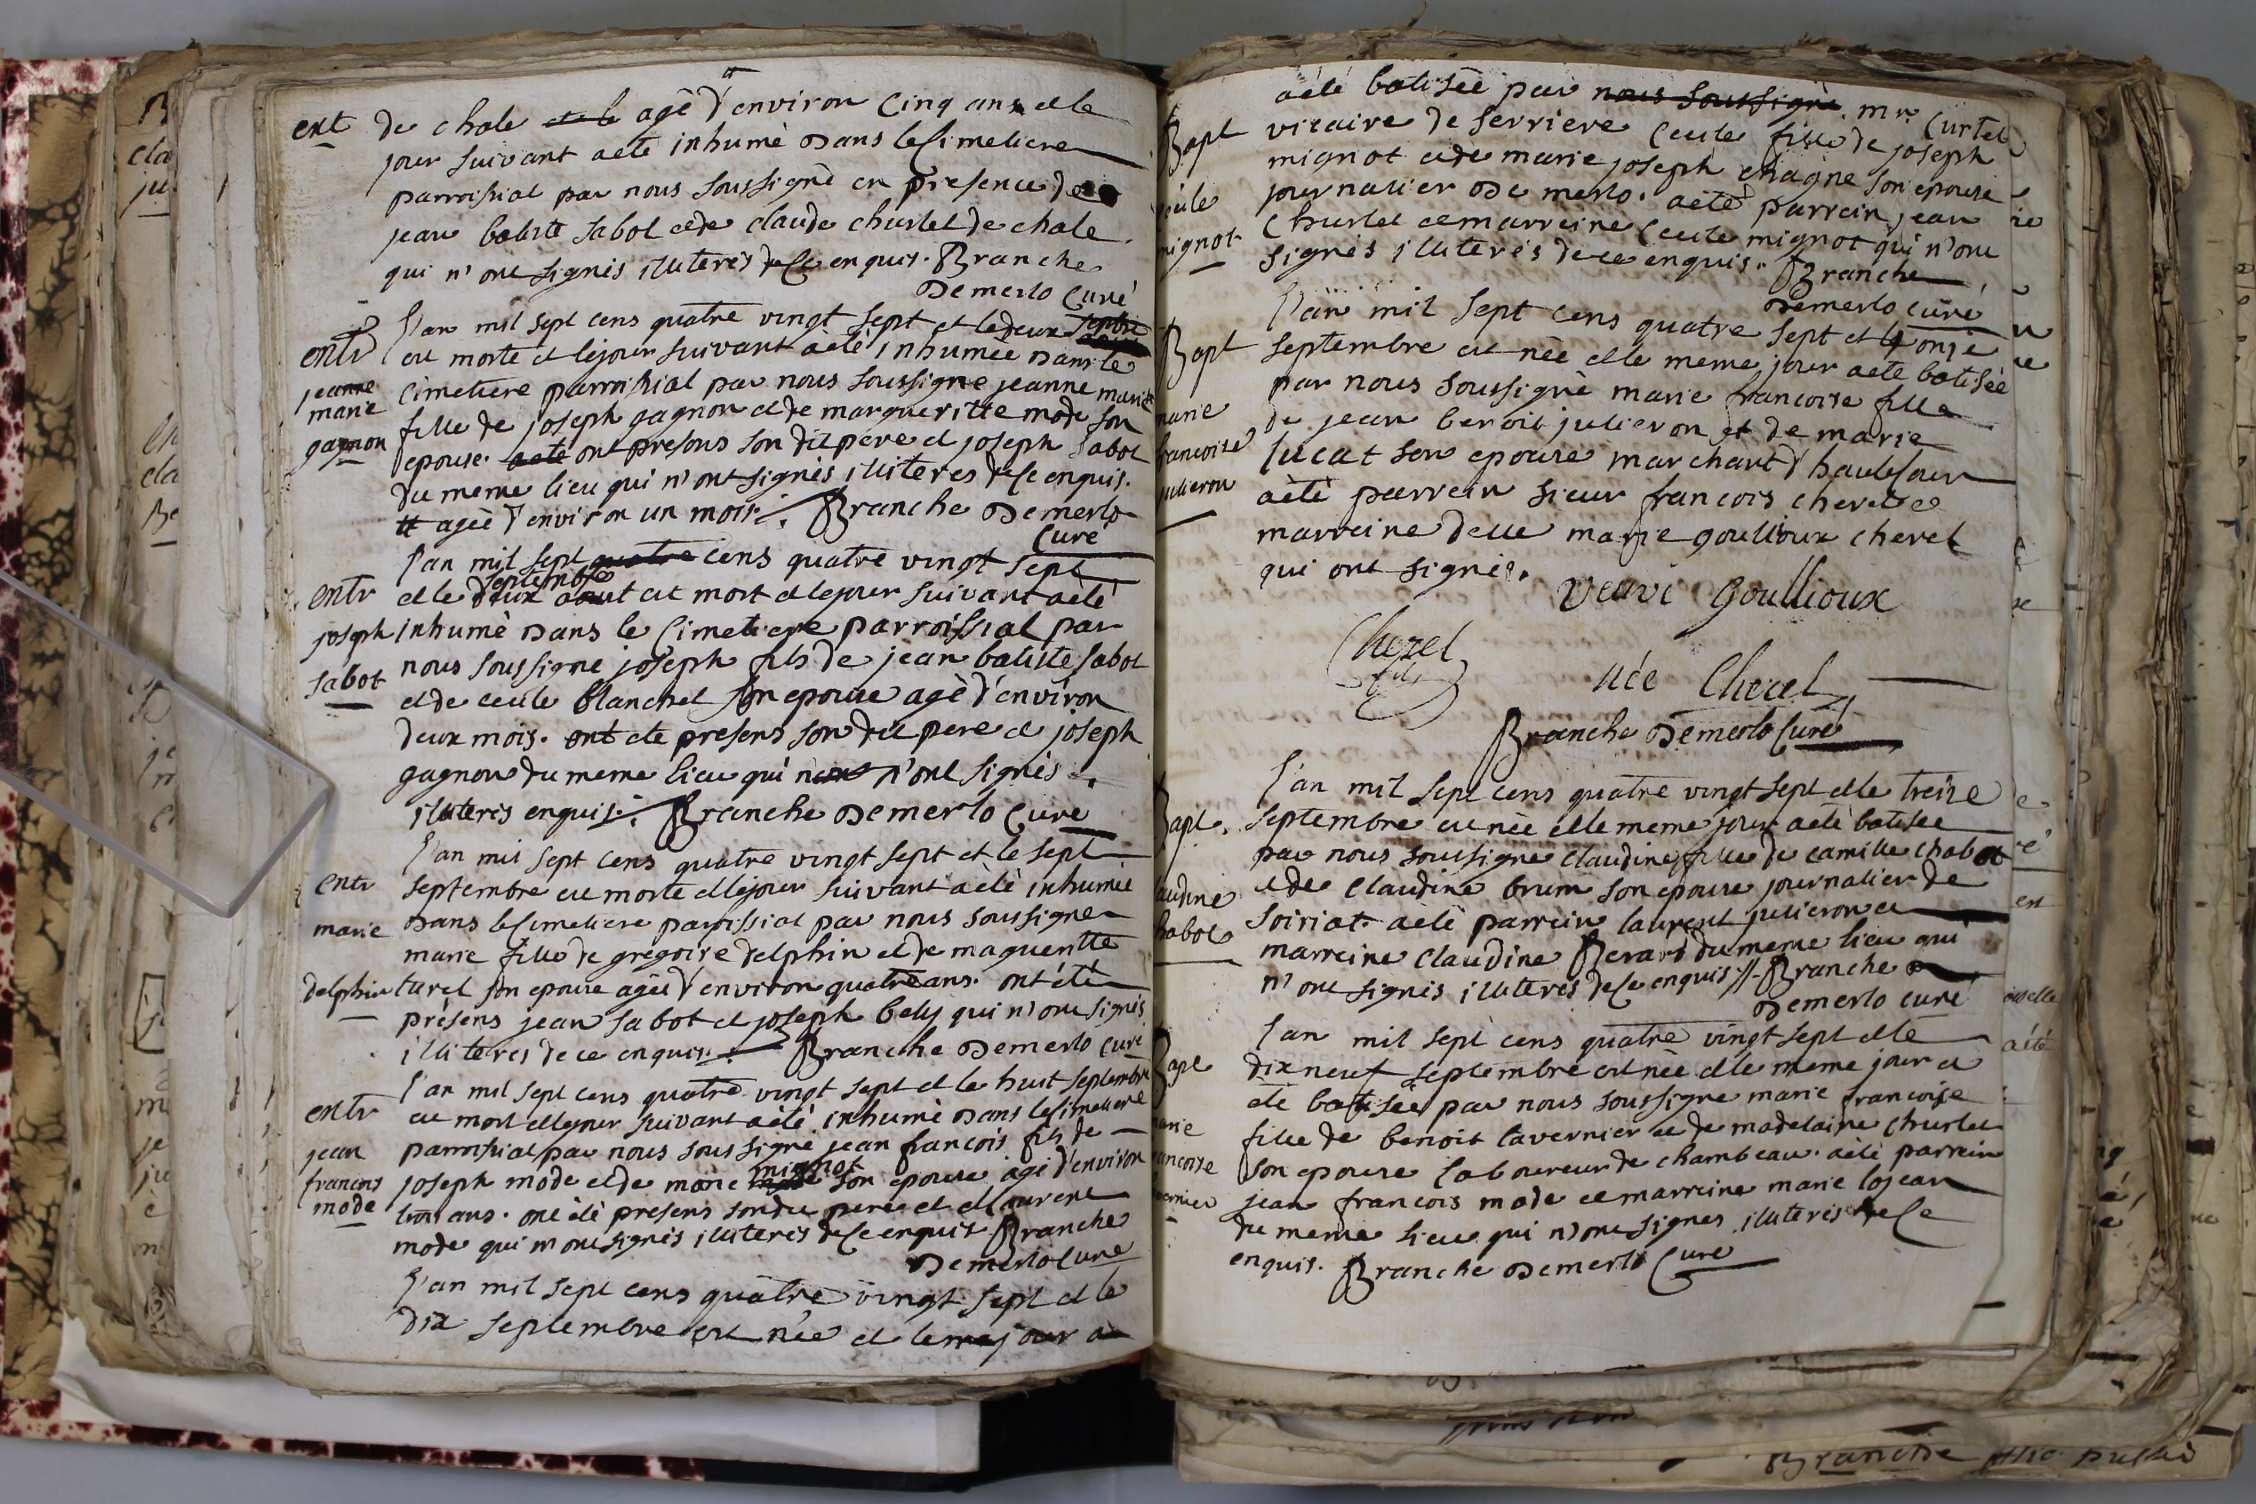 ext
de chale et le agè d'environ cinq ans et le
jour suivant a ete inhumè dans le Cimetiere
parroissial par nous soussignè en presence de
jean batiste sabot et de claude churlet de chale
qui n'ont signés illiterés de ce enquis. Branche
Demerlo Curé
entr
jeanne
marie
gagnon
l'an mil sept cens quatre vingt sept et le deux septbre
est morte et le jour suivant a èté inhumèe dans le
Cimetiere parroissial par nous soussigne jeanne marie
fille de joseph gagnon et de margueritte mode son
epouse. acté ont presens son dit pere et joseph sabot
du meme lieu qui n'ont signès illiteres de ce enquis.
agèe d'environ un mois. Branche Demerlo
Cure
entr
joseph
sabot
l'an mil sept quatre cens quatre vingt sept
septembre
et le deux aout est mort et le jour suivant a eté
inhumè dans le Cimetiere parroissial par
nous soussigne joseph fils de jean batiste sabot
et de cecile blanchet son epouse agè d'environ
deux mois. ont ete presens son dit pere et joseph
gagnon du meme lieu qui n'ont n'ont signès
illiterés enquis. Branche Demerlo Cure
entr
marie
delphin
l'an mil sept cens quatre vingt sept et le sept
septembre est morte et le jour suivant a èté inhumee
dans le Cimetiere parroissial par nous soussigne
marie fille de gregoire delphin et de magueritte
turel son epouse agèe d'environ quatre ans. ont èté
présens jean sabot et joseph bely qui n'ont signés
illiteres de ce enquis. Branche Demerlo curé
entr
jean
francois
mode
l'an mil sept cens quatre vingt sept et le huit septembre
est mort et le jour suivant a èté inhumè dans le Cimetiere
parroissial par nous soussigné jean francois fils de
mignot
joseph mode et de marie son epouse agé d'environ
trois ans. ont èté presens son dit pere et et laurent
mode qui n'ont signés illiterés de ce enquis Branche
Demerlo Cure
l'an mil sept cens quatre vingt sept et le
dix septembre est née et le mejour a
Bapt
mignot
a èté batisée par nous soussignè mr. Curtel
vicaire de serriere Cecile fille de joseph
mignot et de marie joseph chagne son epouse
journalier de merlo. a èté parrein jean
Churlet et marreine Cecile mignot qui n'ont
signés illiterés de ce enquis. Branche
Demerlo curé
Bapt
marie
francoise
julieron
l'an mil sept cens quatre sept et le onze
septembre est nèe et le meme jour a ete batisée
par nous soussignè marie francoise fille
de jean benoit julieron et de marie
lucat son epouse marchant d'hautesour
a èté parrein sieur francois cherel et
marreine delle marie goullioux cherel
qui ont signés.
veuve Goullioux
Cherel
fils
née Cherel
Branche Demerlo Curé
Bapt.
claudine
chabot
l'an mil sept cens quatre vingt sept et le treize
septembre est nèe et le meme jour a èté batisee
par nous soussigne claudine fille de camille chabot
et de claudine brum son epouse journalier de
soiriat. a èté parrein laurent julieron et
marreine Claudine Berard du meme lieu qui
n'ont signés illiterés de ce enquis Branche
Demerlo curé
Bapt
marie
francoise
l'an mil sept cens quatre vingt sept et le
dix neuf septembre est nèe et le meme jour a
été batisée par nous soussigne marie francoise
fille de benoit tavernier et de madelaine churlet
son epouse laboureur de chambeau. a èté parrein
jean francois mode et marreine marie lojean
du meme lieu qui n'ont signes illiterés de ce
enquis. Branche Demerlo Cure